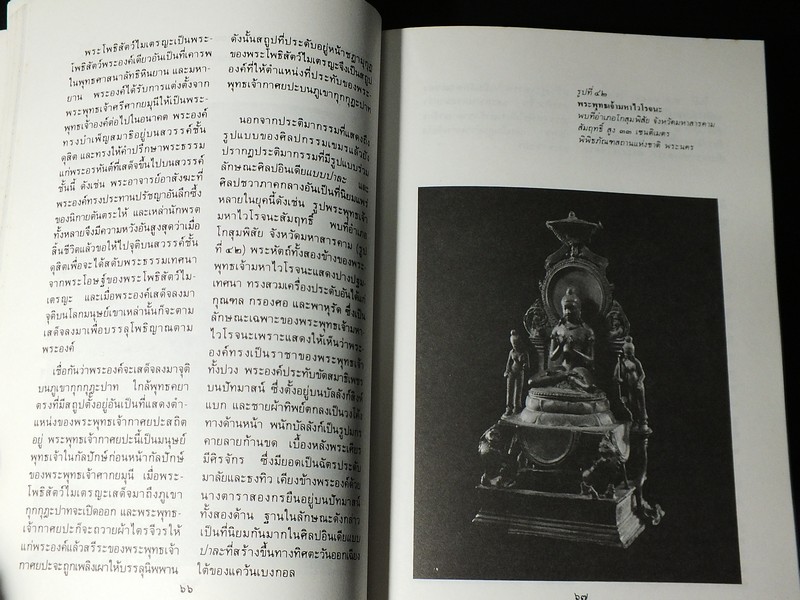 พระโพธิสัตว์ไมเตรยะเป็นพระ-
โพธิสัตว์พระองค์เดียวอันเป็นที่เคารพ
ในพุทธศาสนาลัทธิหินยาน และมหา-
ยาน พระองค์ได้รับการแต่งตั้งจาก
พระพุทธเจ้าศรีศากยมุนีให้เป็นพระ-
พุทธเจ้าองค์ต่อไปในอนาคต พระองค์
ทรงบำเพ็ญสมาธิอยู่บนสวรรค์ชั้น
ดุสิต และทรงให้คำปรึกษาพระธรรม
แก่พระอรหันต์ที่เสด็จขึ้นไปบนสวรรค์
ชั้นนี้ ดังเช่น พระอาจารย์อาสังฆะที่
พระองค์ทรงประทานปรัชญาอันลึกซึ้ง
ของนิกายตันตระให้ และเหล่านักพรต
ทั้งหลายจึงมีความหวังอันสูงสุดว่าเมื่อ
สิ้นชีวิตแล้วขอให้ไปจุติบนสวรรค์ชั้น
ดุสิตเพื่อจะได้สดับพระธรรมเทศนา
จากพระโอษฐ์ของพระโพธิสัตว์ไม-
เตรยะ และเมื่อพระองค์เสด็จลงมา
จุติบนโลกมนุษย์เขาเหล่านั้นก็จะตาม
เสด็จลงมาเพื่อบรรลุโพธิญาณตาม
พระองค์
เชื่อกันว่าพระองค์จะเสด็จลงมาจุติ
บนภูเขากุกกุฏะปาท ใกล้พุทธคยา
ตรงที่มีสถูปตั้งอยู่อันเป็นที่แสดงตำ-
แหน่งของพระพุทธเจ้ากาศยปะสถิต
อยู่ พระพุทธเจ้ากาศยปะนี้เป็นมนุษย์
พุทธเจ้าในกัลป์ก่อนหน้ากัลป์
ของพระพุทธเจ้าศากยมุนี เมื่อพระ-
โพธิสัตว์ไมเตรยะเสด็จมาถึงภูเขา
กุกกุฏะปาทจะเปิดออก และพระพุทธ-
เจ้ากาศยปะก็จะถวายผ้าไตรจีวรให้
แก่พระองค์แล้วสรีระของพระพุทธเจ้า
กาศยปะจะถูกเพลิงเผาให้บรรลุนิพพาน
๖๖
ดังนั้นสถูปที่ประดับอยู่หน้าชฎามกุฎ
ของพระโพธิสัตว์ไมเตรยะจึงเป็นสถูป
องค์ที่ให้ตำแหน่งที่ประทับของพระ-
พุทธเจ้ากาศยปะบนภูเขากุกกุฏะปาท
นอกจากประติมากรรมที่แสดงถึง
รูปแบบของศิลปกรรมเขมรแล้วยัง
ปรากฏประติมากรรมที่มีรูปแบบร่วม
ลักษณะศิลปอินเดียแบบปาละ และ
ศิลปชวาภาคกลางอันเป็นที่นิยมแพร่
หลายในยุคนี้ดังเช่น รูปพระพุทธเจ้า
มหาไวโรจนะสัมฤทธิ์ พบที่อำเภอ
โกสุมพิสัย จังหวัดมหาสารคาม (รูป
ที่ ๔๒) พระหัตถ์ทั้งสองข้างของพระ
พุทธเจ้ามหาไวโรจนะแสดงปางปฐม-
เทศนา ทรงสวมเครื่องประดับอันได้แก่
กุณฑล กรองศอ และพาหุรัด ซึ่งเป็น
ลักษณะเฉพาะของพระพุทธเจ้ามหา-
ไวโรจนะเพราะแสดงให้เห็นว่าพระ-
องค์ทรงเป็นราชาของพระพุทธเจ้า
ทั้งปวง พระองค์ประทับขัดสมาธิเพชร
บนปัทมาสน์ ซึ่งตั้งอยู่บนบัลลังก์สิงห์
แบก และชายผ้าทิพย์ตกลงเป็นวงโค้ง
ทางด้านหน้า พนักบัลลังก์เป็นรูปมกร
คายลายก้านขด เบื้องหลังพระเศียร
มีศิรจักร ซึ่งมียอดเป็นฉัตรประดับ
มาลัยและธงทิว เคียงข้างพระองค์ด้วย
นางดาราสององค์ยืนอยู่บนปัทมาสน์
ทั้งสองด้าน ฐานในลักษณะดังกล่าว
เป็นที่นิยมกันมากในศิลปอินเดียแบบ
ปาละที่สร้างขึ้นทางทิศตะวันออกเฉียง
ใต้ของแคว้นเบงกอล
รูปที่ ๔๒
พระพุทธเจ้ามหาไวโรจนะ
พบที่อำเภอโกสุมพิสัย จังหวัดมหาสารคาม
สัมฤทธิ์ สูง ๓๓ เซนติเมตร
พิพิธภัณฑสถานแห่งชาติ พระนคร
๖๗